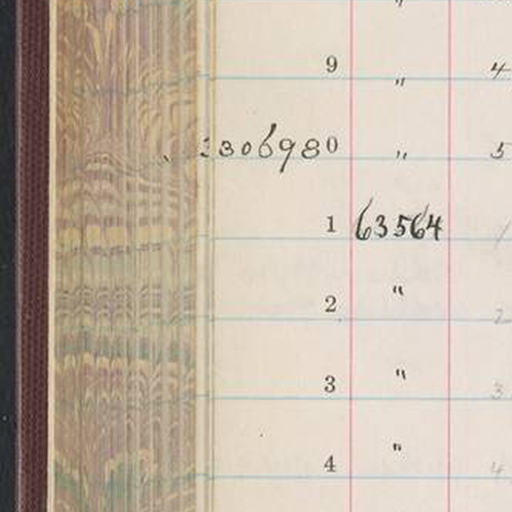 "
9 " 4
306980 " 5
1 63564 1
2 " 2
3 " 3
4 " 4